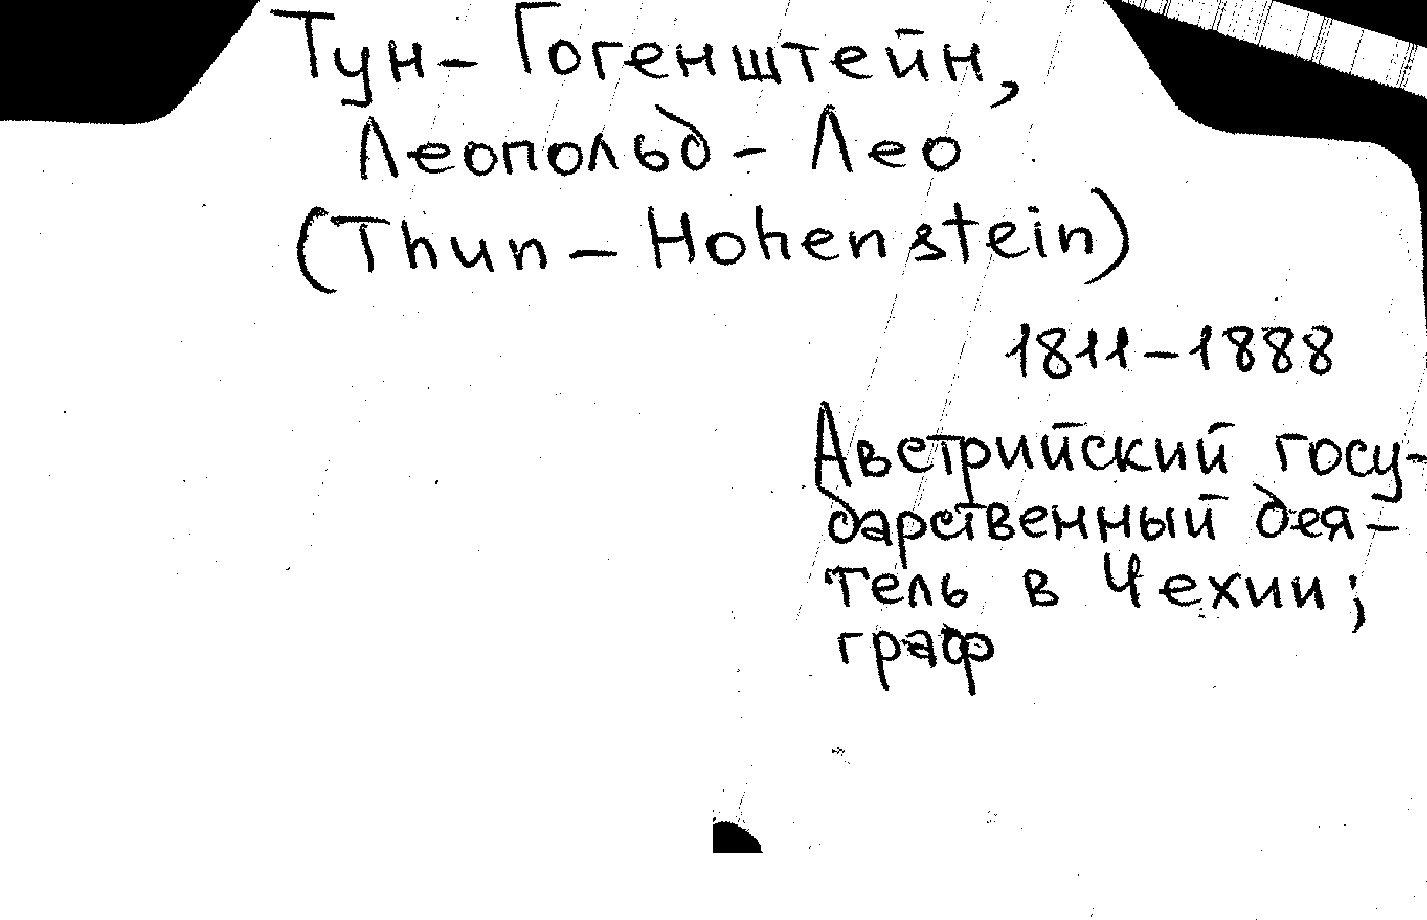 Тун-Гогенштейн,
Леопольд-Лео
(Thun-Hohenstein)
1811-1888
Австрийский госу-
дарственный дея-
тель в Чехии;
граф